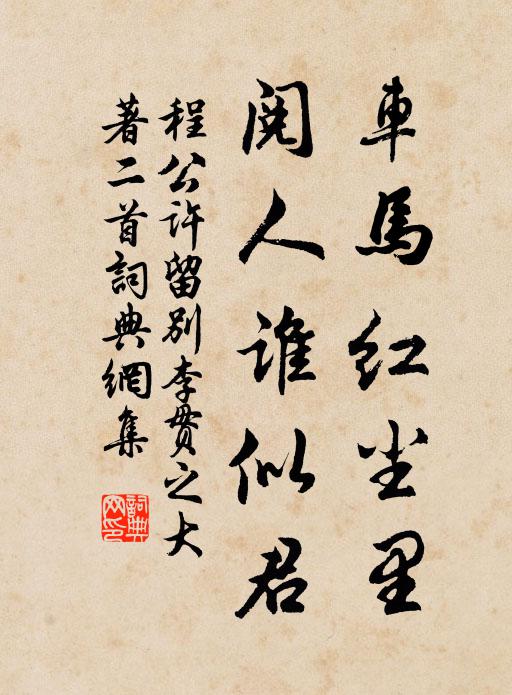 車馬红尘里
閱人谁似君
程公许留别李贯之大
著二首詞典網集
詞典
网印